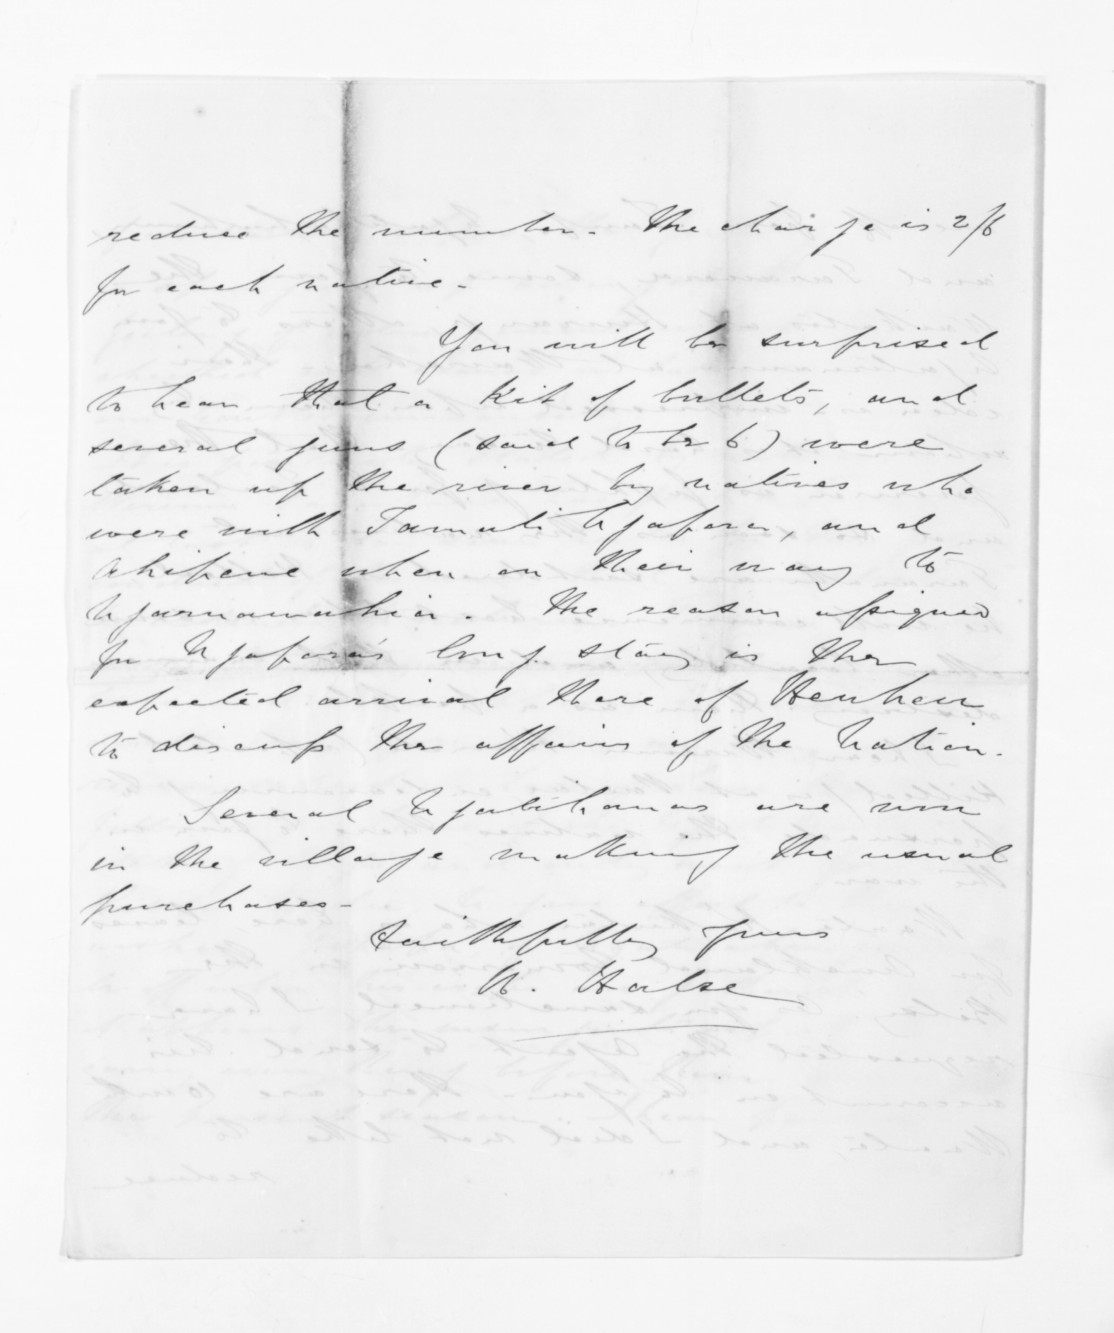 reduce the number. The charge is 2/6
for each native.
You will be surprised
to hear that a kit of bullets, and
several guns (said to be 6) were
taken up the river by natives who
were with Tamati Ngapora, and
when on their way to
Ngaruawahia. The reason assigned
for Ngapora's long stay is the
expected arrival there of Heuheu
to discuss the affairs of the Nation.
Several Ngatihauas are now
in the village making the usual
purchases.
Faithfully yours
H. Halse